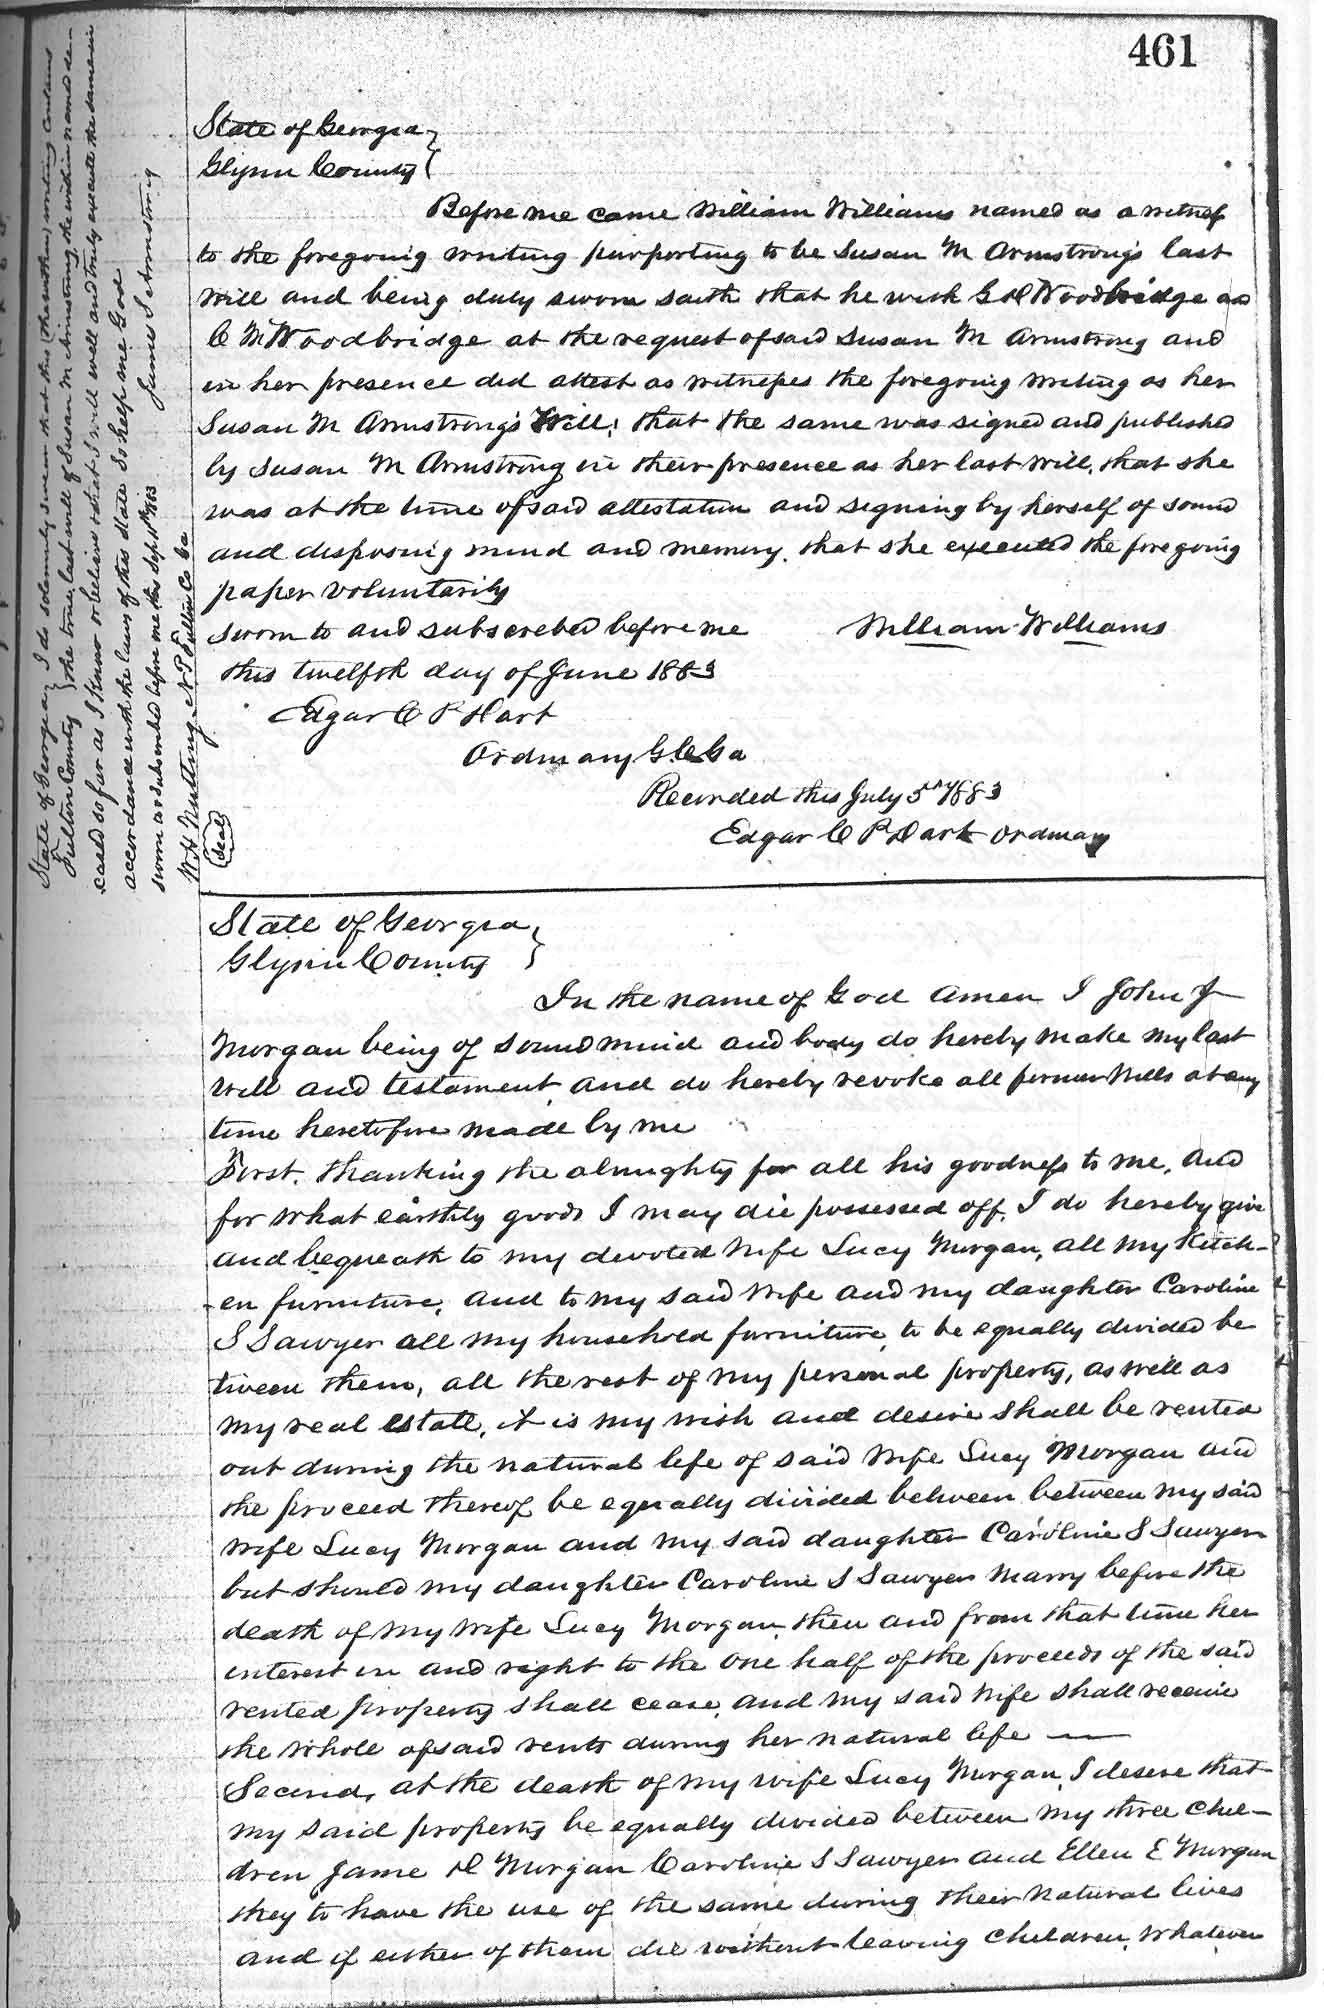 461
State of Georgia
Glynn County
Before me came William Williams named as a witness
to the foregoing writing purporting to be Susan M Armstrong's last
will and being duly sworn saith that he with G H Woodbridge and
C M Woodbridge at the request of said Susan M Armstrong and
in her presence did attest as witnesses the foregoing writing as her
Susan M Armstrong's Will; that the same was signed and published
by Susan M Armstrong in their presence as her last will, that she
was at the time of said attestation and signing by herself of sound
and disposing mind and memory, that she executed the foregoing
paper voluntarily
sworn to and subscribed before me William Williams
this twelfth day of June 1883
Edgar C P Dart
Ordinary G C Ga
Recorded this July 5th 1883
Edgar C P Dart Ordinary
State of Georgia I do solemnly swear that this writing contains
Fulton County the true last will of Susan M Armstrong, the within named de-
ceased so far as I know or believe & that I will well and truly execute the same in
accordance with the laws of this State So help me God
sworn and subscribed before me this Sept 1883 James S Armstrong
W. H. Nutting N P Fulton Co Ga
Seal
State of Georgia
Glynn County
In the name of God Amen I John J
Morgan being of sound mind and body do hereby make my last
will and testament and do hereby revoke all former Wills at any
time heretofore made by me
First, thanking the almighty for all his goodness to me, and
for what earthly goods I may die possessed off, I do hereby give
and bequeath to my devoted wife Lucy Morgan, all my Kitch-
-en furniture, and to my said wife and my daughter Caroline
S Sawyer all my household furniture, to be equally divided be
tween them, all the rest of my personal property, as well as
my real estate, it is my wish and desire shall be rented
out during the natural life of said wife Lucy Morgan and
the proceed thereof be equally divided between between my said
wife Lucy Morgan and my said daughter Caroline S Sawyer
but should my daughter Caroline S Sawyer marry before the
death of my wife Lucy Morgan, then and from that time her
interest in and right to the one half of the proceeds of the said
rented property shall cease, and my said wife shall receive
the whole of said rents during her natural life —
Second, at the death of my wife Lucy Morgan, I desire that
my said property be equally divided between my three chil-
dren Jame D Morgan Caroline S Sawyer and Ellen E Morgan
they to have the use of the same during their natural lives
and if either of them die without leaving children, whatever